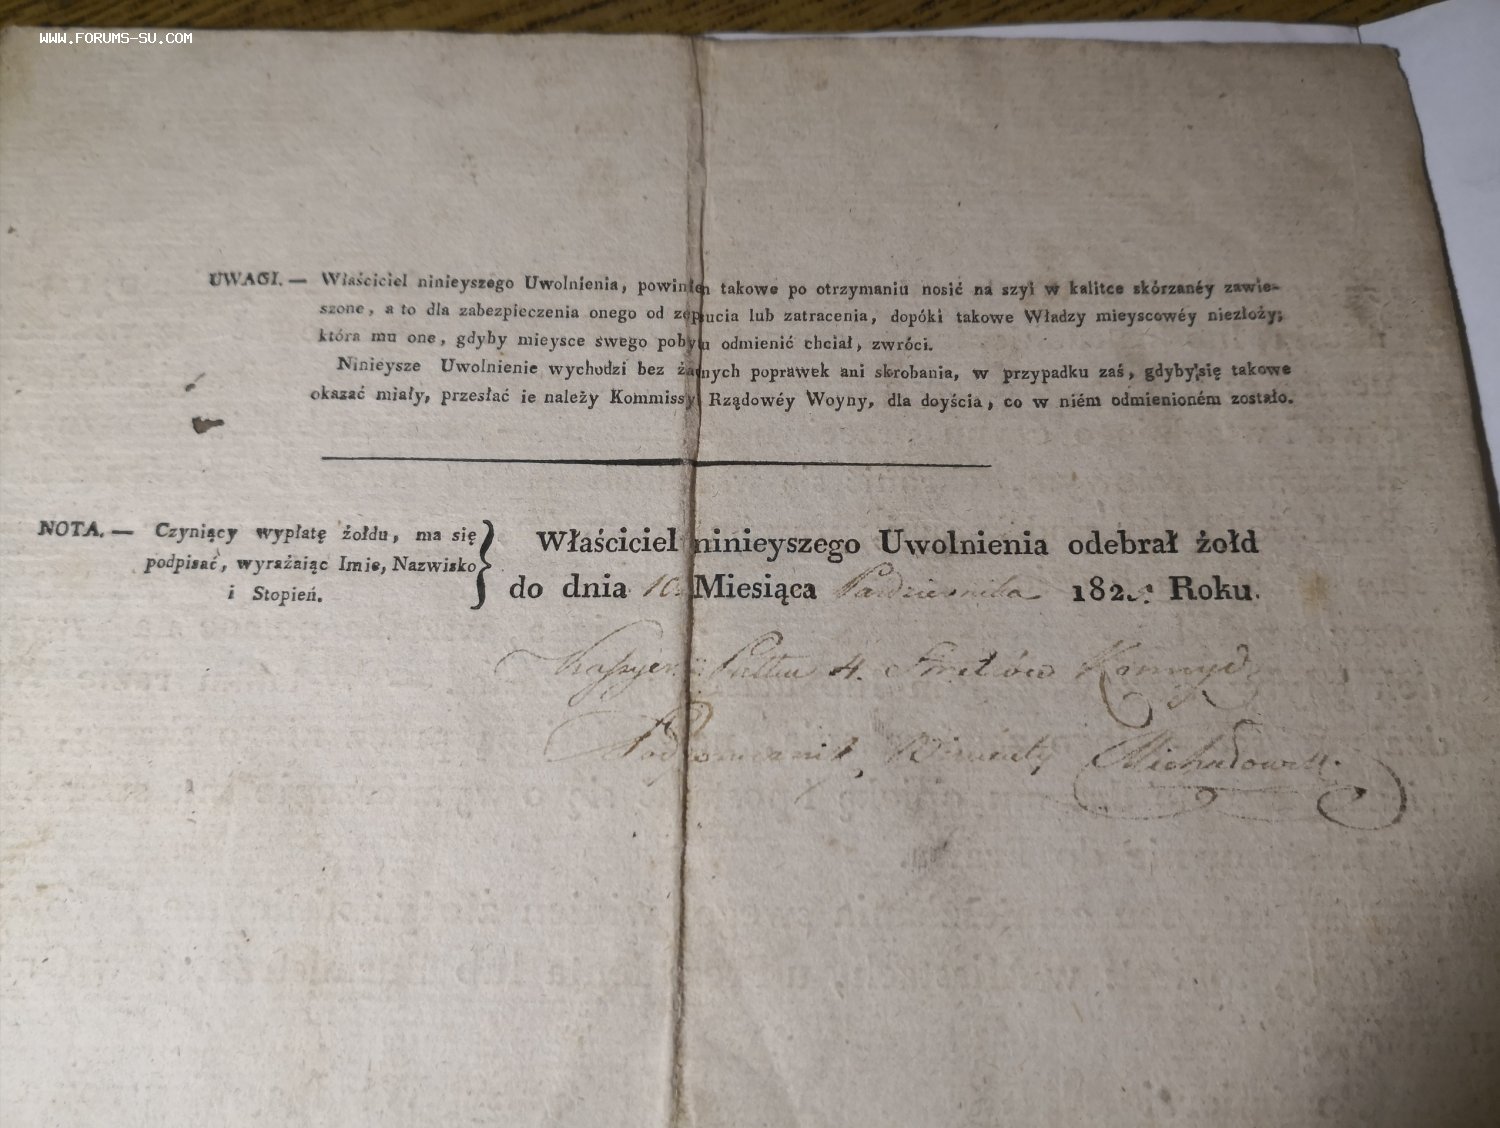 WWW.FORUMS-SU.COM
UWAGI. — Właściciel ninieyszego Uwolnienia, powinien takowe po otrzymaniu nosić na szyi w kalitce skórzanéy zawie-
szone, a to dla zabezpieczenia onego od zepsucia lub zatracenia, dopóki takowe Władzy mieyscowéy niezłoży;
która mu one, gdyby mieysce swego pobytu odmienić chciał, zwróci.
Ninieysze Uwolnienie wychodzi bez żadnych poprawek ani skrobania, w przypadku zaś, gdyby się takowe
okazać miały, przesłać ie należy Kommissyi Rządowéy Woyny, dla doyścia, co w niém odmienioném zostało.
NOTA. — Czyniący wypłatę żołdu, ma się
podpisać, wyrażaiąc Imie, Nazwisko
i Stopień.
Właściciel ninieyszego Uwolnienia odebrał żołd
do dnia 10 Miesiąca Października 182 Roku.
Kassyer Pułku 4. Strzelców Konnych
Podporucznik Wincenty Michałowski